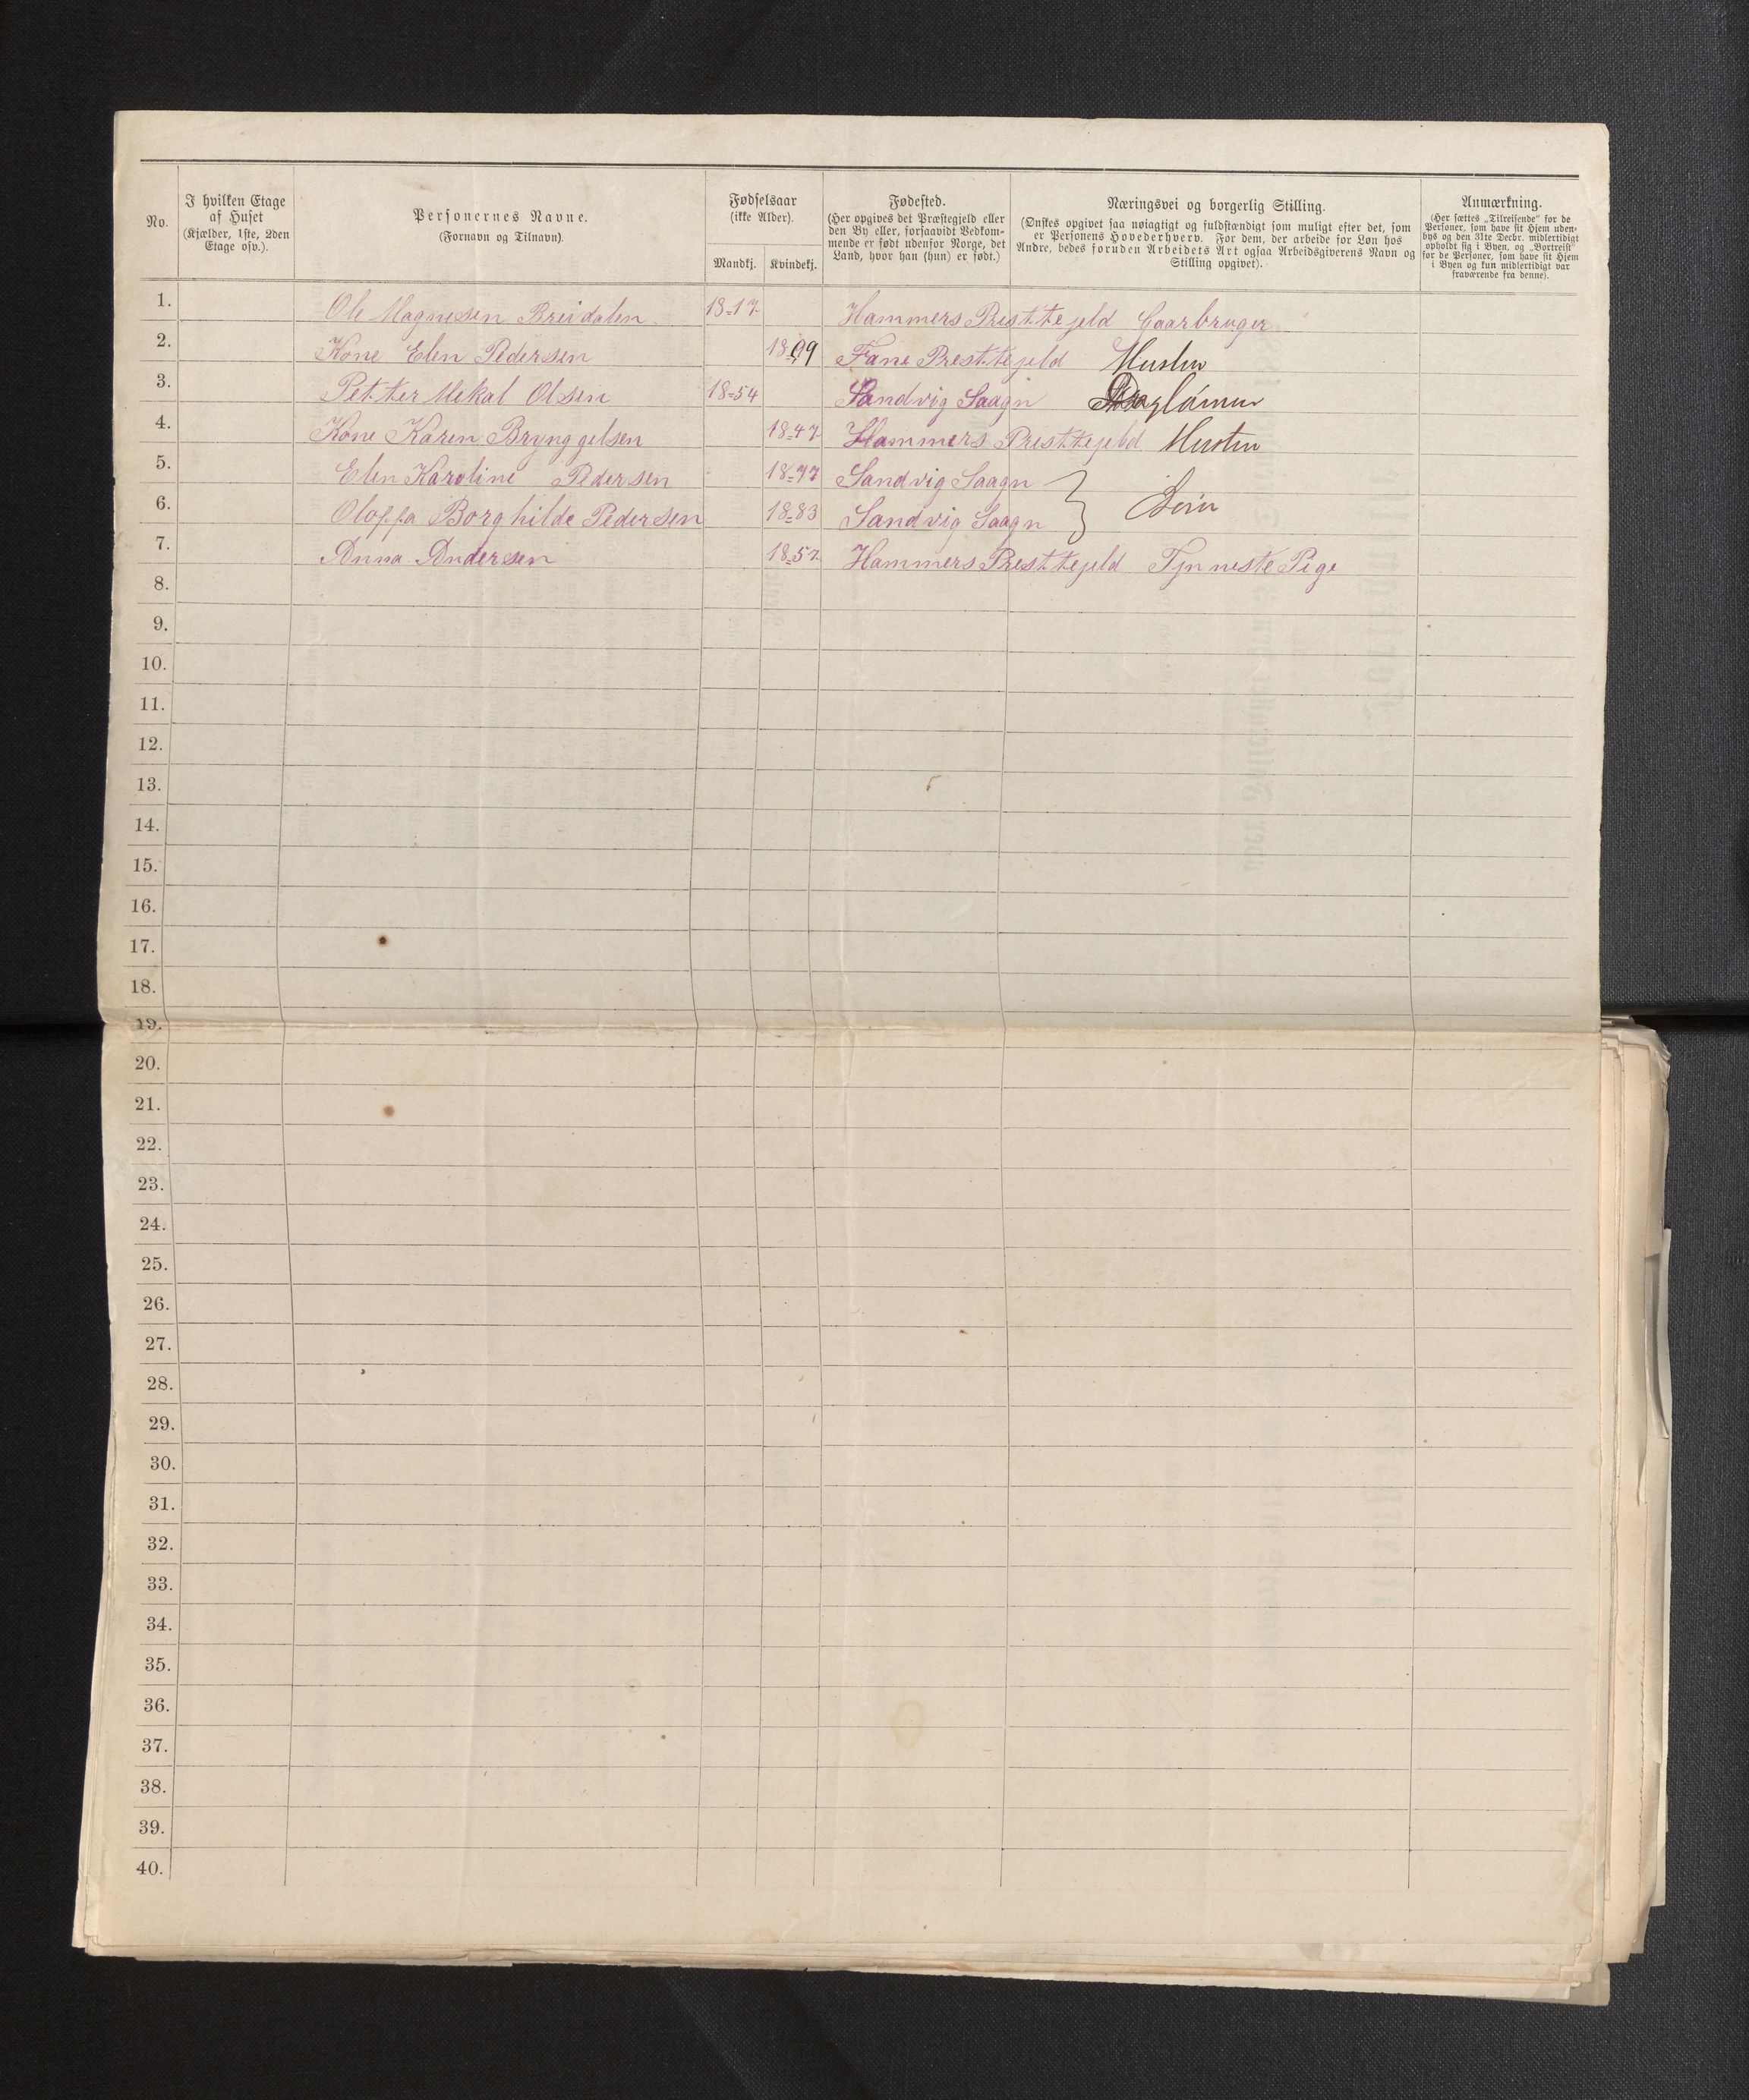 No.
I hvilken Etage
af Huset
(Kjælder, 1ste, 2den
Etage osv.).
Personernes Navne.
(Fornavn og Tilnavn).
Fødselsaar
(ikke Alder).
Mandkj. Kvindekj.
Fødested.
(Her opgives det Præstegjeld eller
den By eller, forsaavidt Vedkom-
mende er født udenfor Norge, det
Land, hvor han (hun) er født.)
Næringsvei og borgerlig Stilling.
(Ønskes opgivet saa nøiagtigt og fuldstændigt som muligt efter det, som
er Personens Hovederhverv. For dem, der arbeide for Løn hos
Andre, bedes foruden Arbeidets Art ogsaa Arbeidsgiverens Navn og
Stilling opgivet).
Anmærkning.
(Her sættes „Tilreisende" for de
Personer, som have sit Hjem uden-
bys og den 31te Decbr. midlertidigt
opholdt sig i Byen, og „Bortreist"
for de Personer, som have sit Hjem
i Byen og kun midlertidigt var
fraværende fra denne).
1. Ole Magnesen Breidalen 18-17 Hammers Prest.tejeld Gaarbruger
2. Kone Elen Pedersen 1899 Fane Prest.tejeld
3. Pet.ter Mekal Olsen 18-54 Sandvig Saagn
4. Kone Karen Brynggelsen 18-47 Hammers Prest.tejeld
5. Elen Karoline Pedersen 18-77 Sandvig Saagn
6. Olof.fa Borghilde Pedersen 18-83 Sandvig Saagn
7. Anna Andersen 18-57 Hammers Prest.tejeld Tjnneste Pige
8.
9.
10.
11.
12.
13.
14.
15.
16.
17.
18.
19.
20.
21.
22.
23.
24.
25.
26.
27.
28.
29.
30.
31.
32.
33.
34.
35.
36.
37.
38.
39.
40.